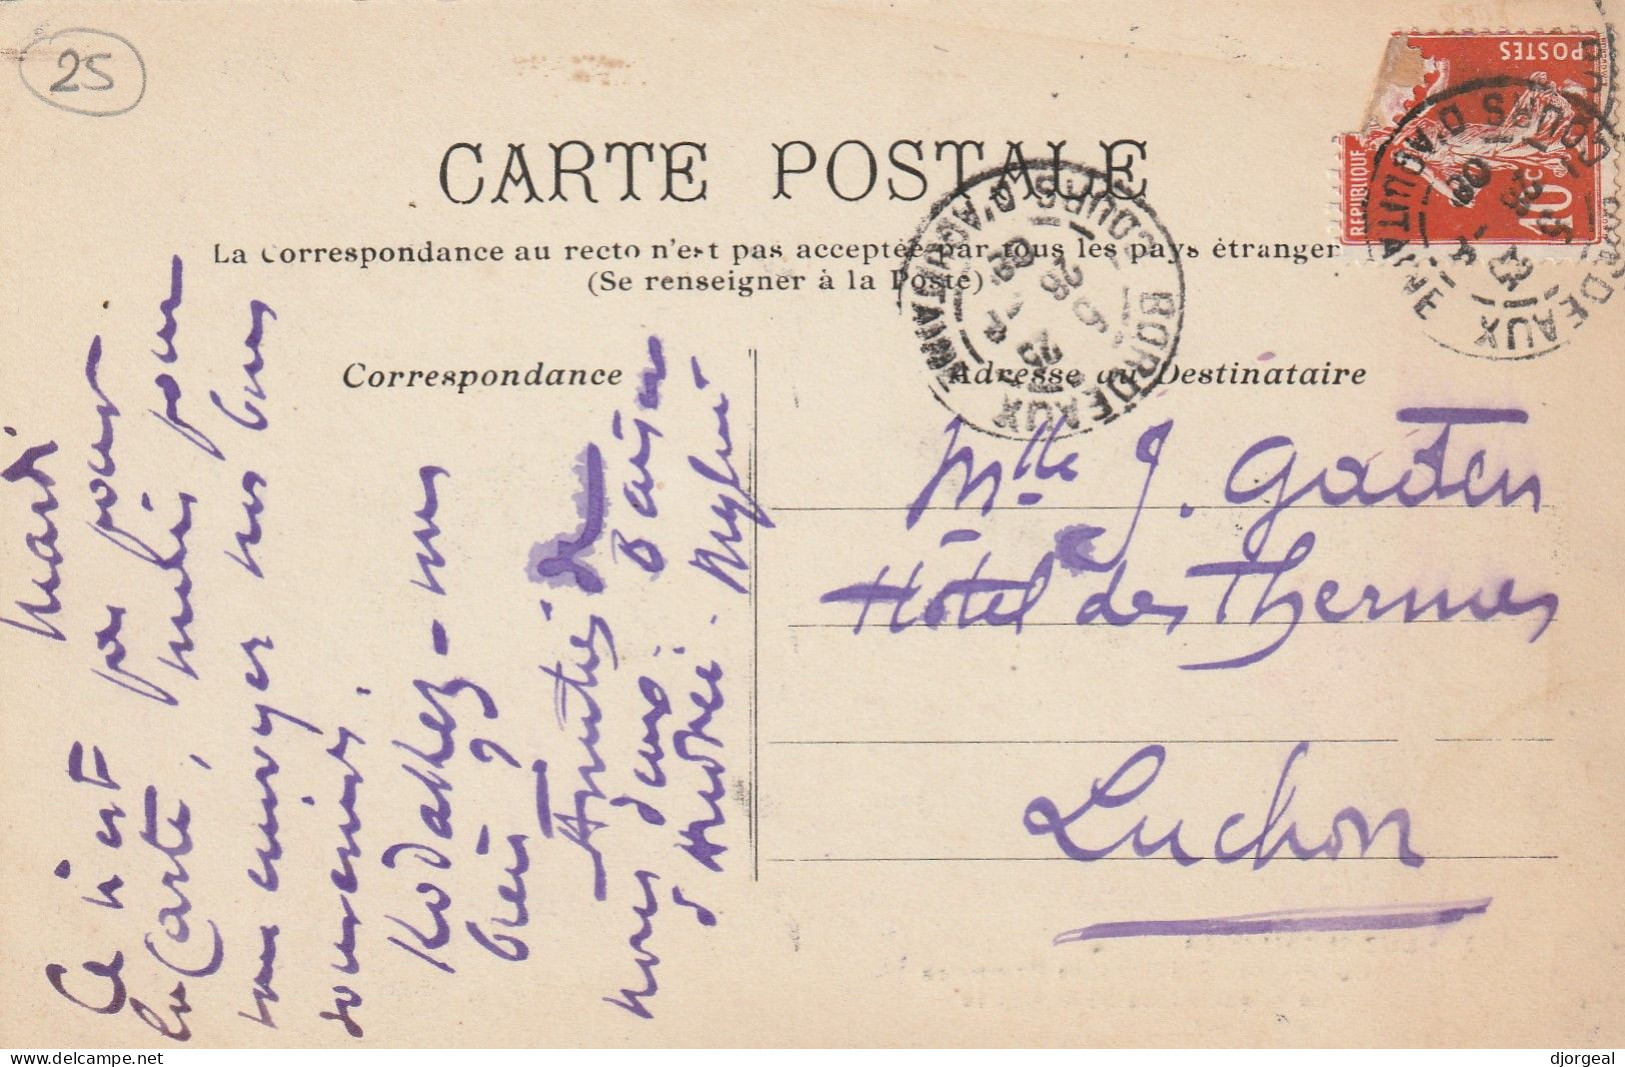 25
CARTE POSTALE
La Correspondance au recto n'est pas acceptée par tous les pays étrangers
(Se renseigner à la Poste)
Correspondance
Adresse au Destinataire
POSTES
REPUBLIQUE
10c
BORDEAUX
COURS D'AQUITAINE
BORDEAUX
COURS D'AQUITAINE
Mardi
Ce n'est pas pour
la Carte, mais pour
vous envoyer nos bons
souvenirs.
Kodakez-vous
bien ?
Amitiés de
nous deux
Mlle J. Gaden
Hôtel des Thermes
Luchon
djorgeal
delcampe.net